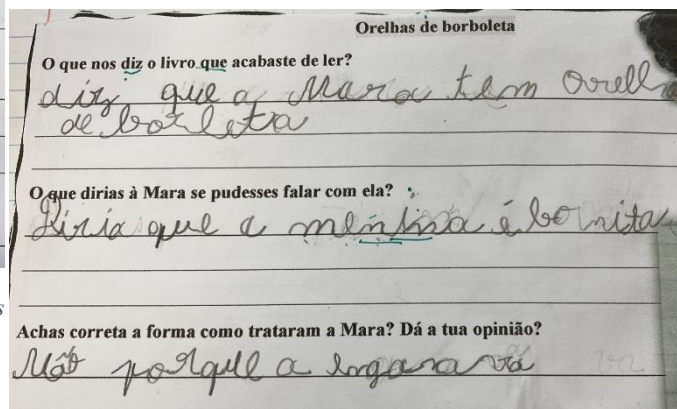 Orelhas de borboleta
O que nos diz o livro que acabaste de ler?
diz que a Mara tem orelh
de borleta
O que dirias à Mara se pudesses falar com ela?
Diria que a menina é bonita
Achas correta a forma como trataram a Mara? Dá a tua opinião?
Não porque a